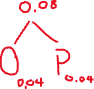 0.08
O P
0.04 0.04